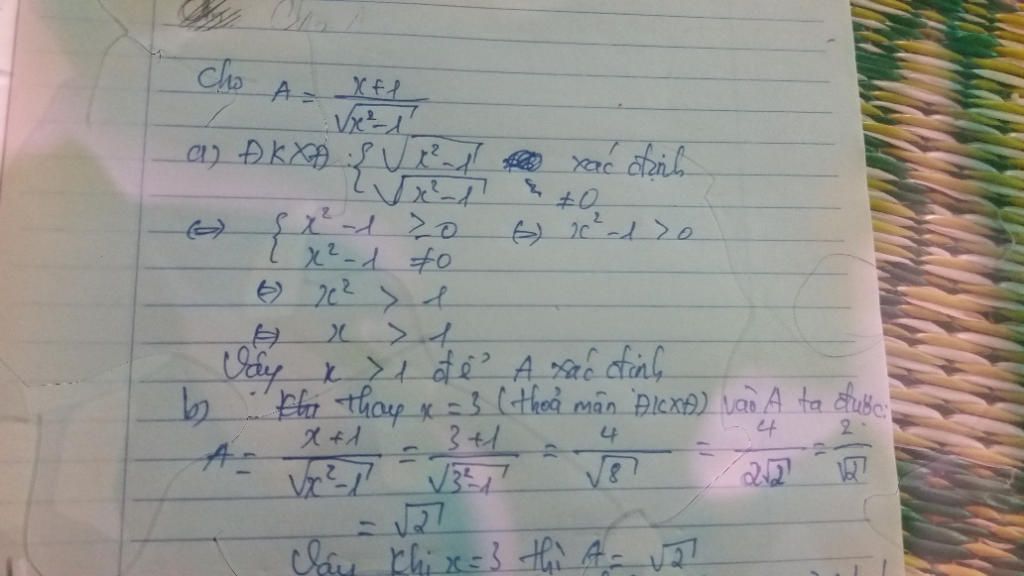 Cho A = x+1 / √x²-1
a) ĐKXĐ : { √x²-1 xác định
√x²-1 ≠0
⇔ { x²-1 ≥0 ⇔ x²-1 >0
x²-1 ≠0
⇔ x² > 1
⇔ x > 1
Vậy x >1 để A xác định
b) thay x = 3 (thoả mãn ĐKXĐ) vào A ta được:
A = x+1 / √x²-1 = 3+1 / √3²-1 = 4 / √8 = 4 / 2√2 = 2 / √2
= √2
Vậy khi x=3 thì A= √2